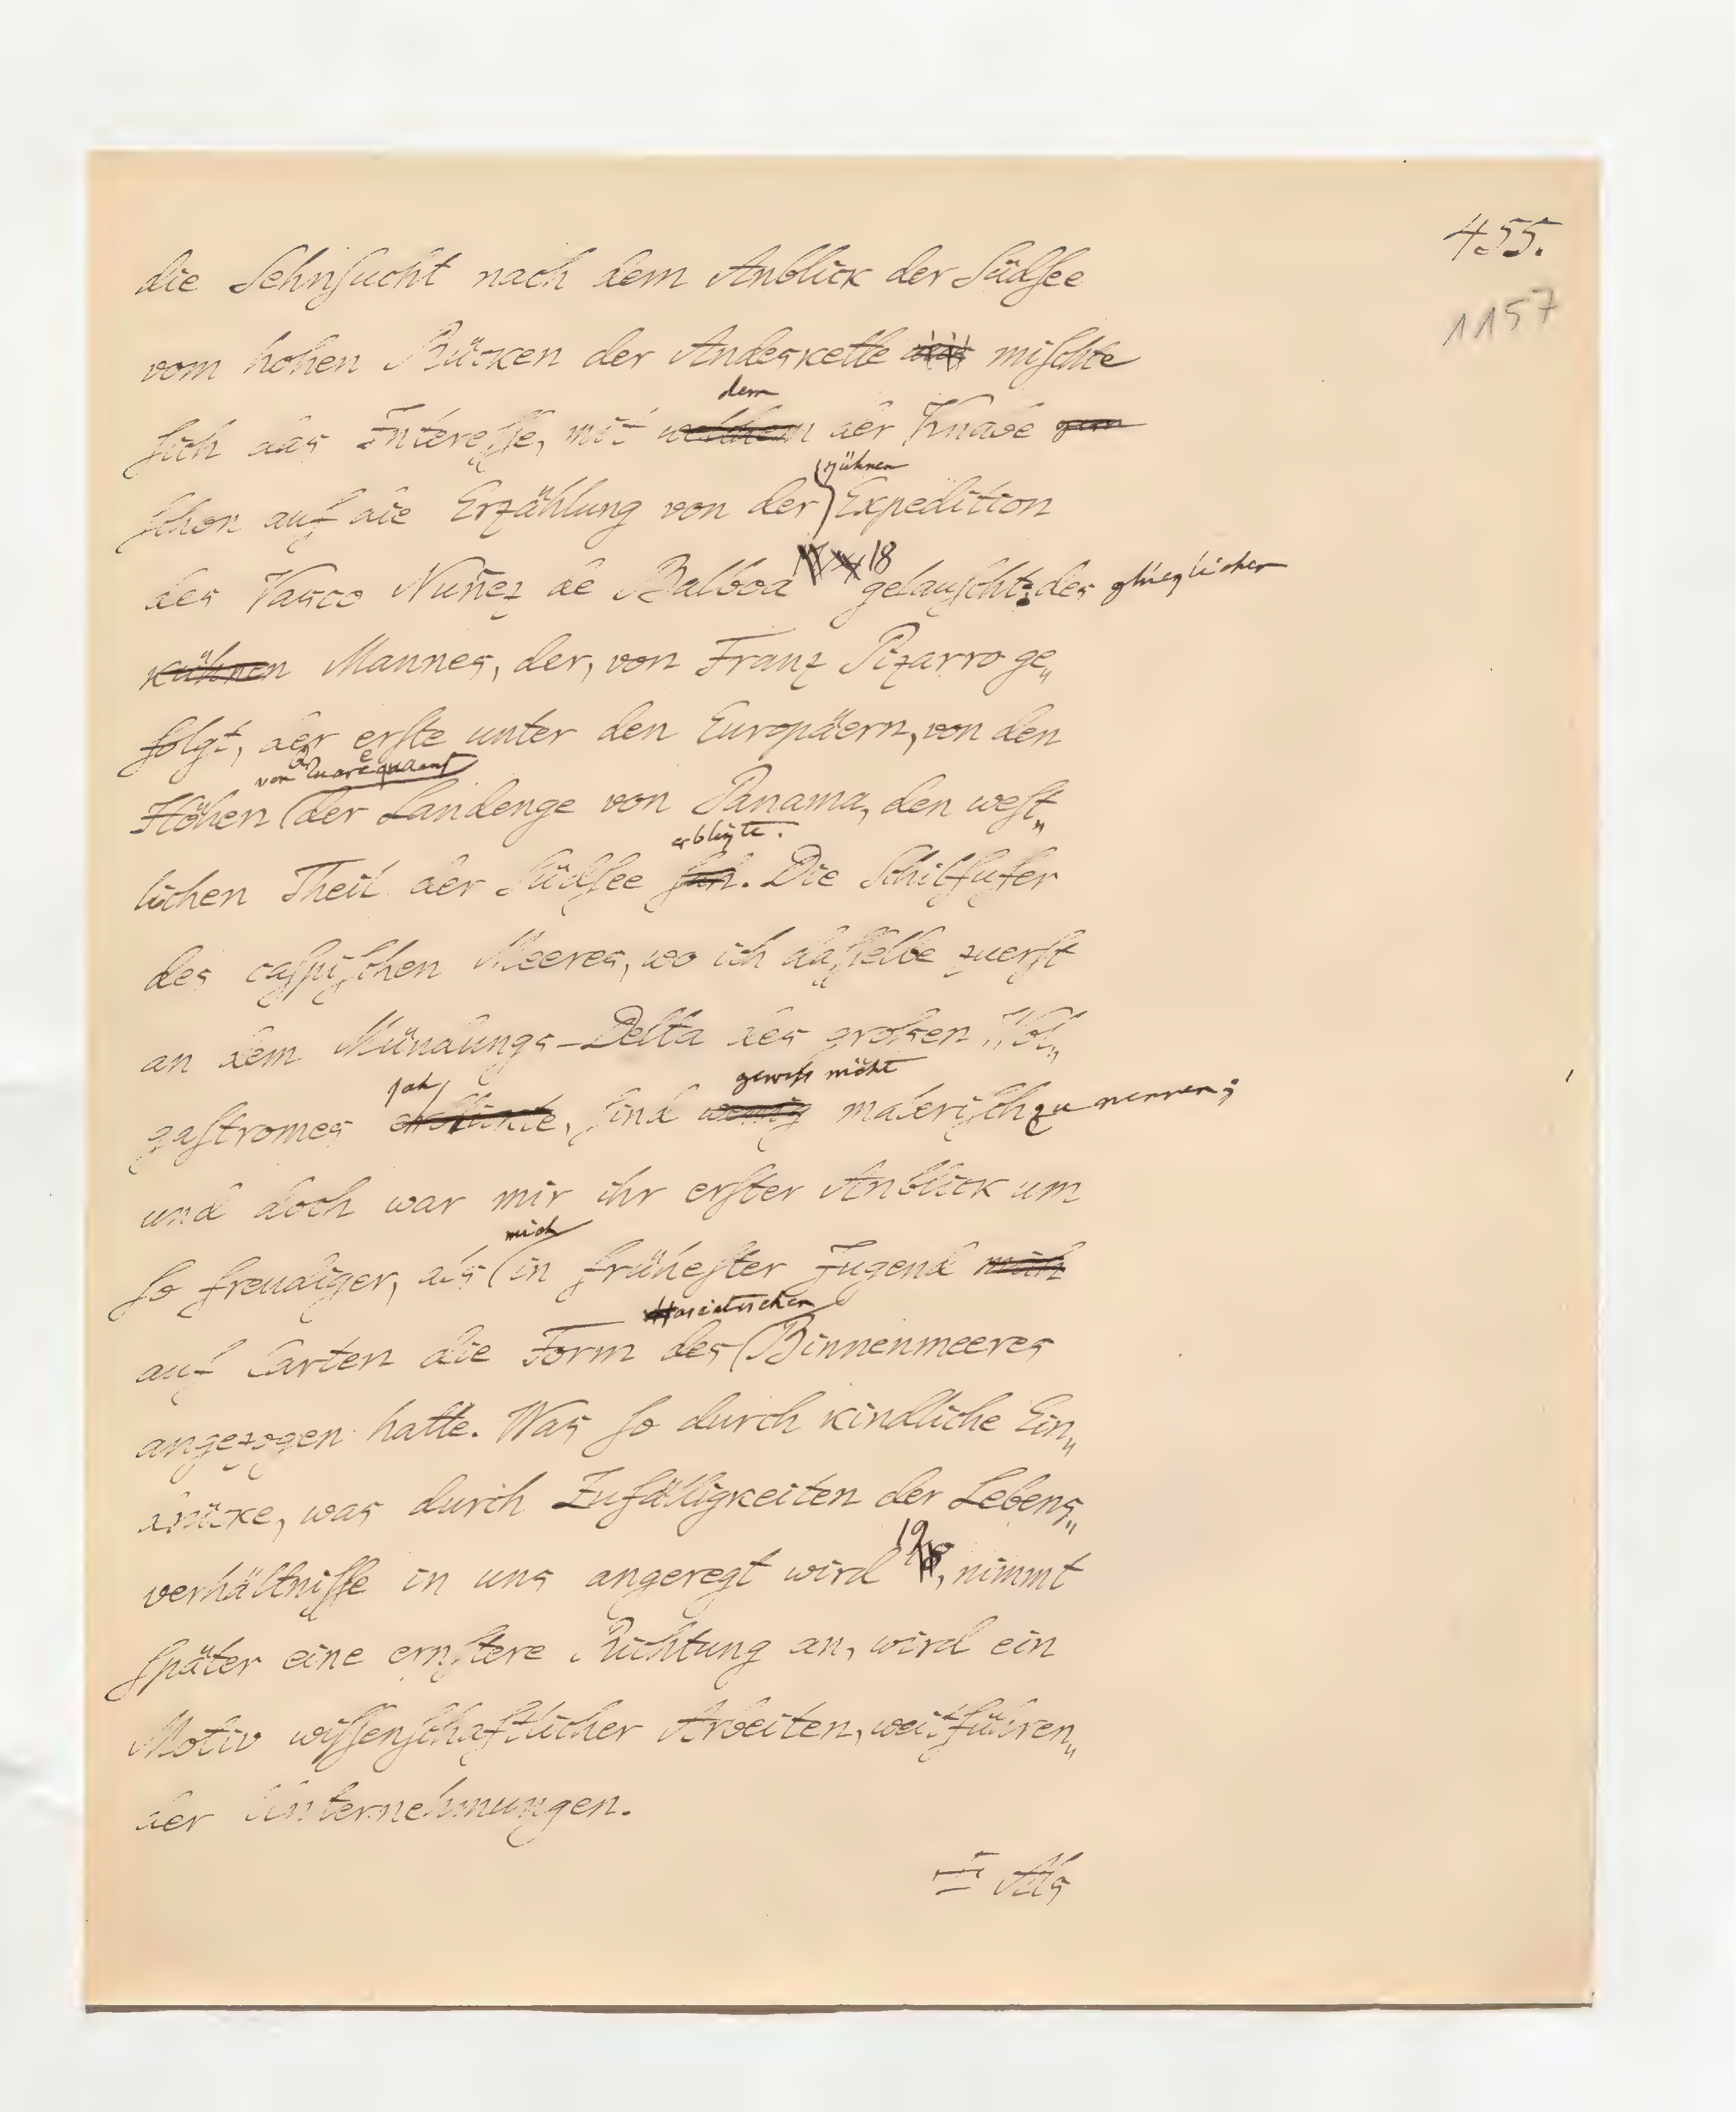 455.
1157
die Sehnsucht nach dem Anblick der Südsee
vom hohen Rücken der Andeskette mischte
dem
sich das Interesse, mit welchem der Knabe
kühnen
schon auf die Erzählung von der Expedition
18
des Vasco Nuñez de Balboa gelauscht: des glücklichen
kühnen Mannes, der, von Franz Pizarro ge„
folgt, der erste unter den Europäern, von den
von Quarequa auf
Höhen der Landenge von Panama, den west„
erblickte.
lichen Theil der Südsee sah. Die Schilfufer
des caspischen Meeres, wo ich dasselbe zuerst
an dem Mündungs-Delta des großen Wol„
sah, gewiß nicht
gastromes erblickte, sind wenig malerisch zu nennen;
und doch war mir ihr erster Anblick um
mich
so freudiger, als in frühester Jugend mich
asiatischen
auf Carten die Form des Binnenmeeres
angezogen hatte. Was so durch kindliche Ein„
drücke, was durch Zufälligkeiten der Lebens„
19
verhältnisse in uns angeregt wird, nimmt
später eine ernstere Richtung an, wird ein
Motiv wissenschaftlicher Arbeiten, weitführen„
der Unternehmungen.
Als